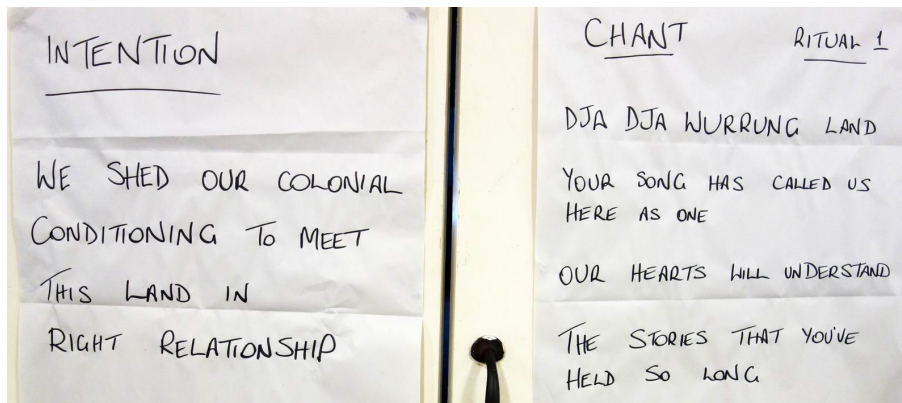 INTENTION
WE SHED OUR COLONIAL
CONDITIONING TO MEET
THIS LAND IN
RIGHT RELATIONSHIP
CHANT
RITUAL 1
DJA DJA WURRUNG LAND
YOUR SONG HAS CALLED US
HERE AS ONE
OUR HEARTS WILL UNDERSTAND
THE STORIES THAT YOU'VE
HELD SO LONG